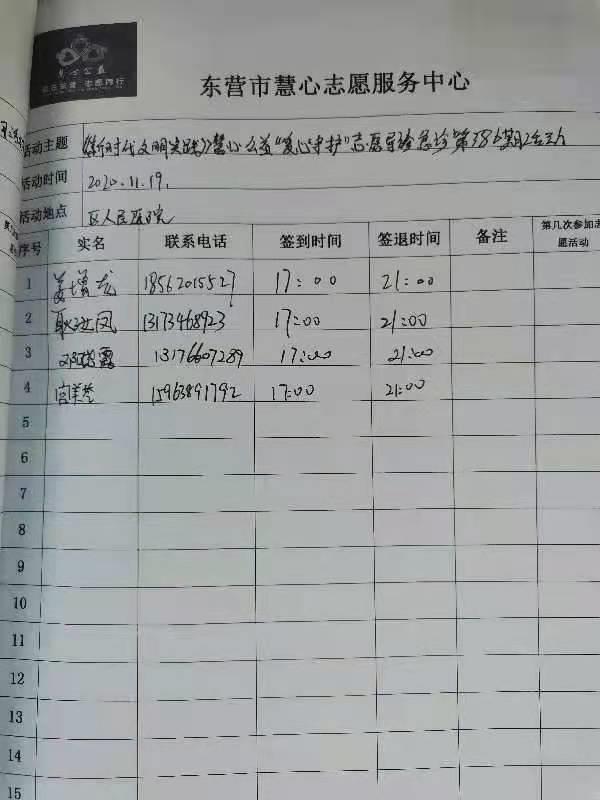 慧心公益
东营市慧心志愿服务中心
活动主题 《新时代文明实践》慧心公益"爱心守护"志愿导诊急诊第386期活动
活动时间 2020.11.19.
活动地点 区人民医院
序号 实名 联系电话 签到时间 签退时间 备注 第几次参加志愿活动
1 姜增龙 18562015527 17:00 21:00
2 耿进凤 13173468923 17:00 21:00
3 邓瑞霞 13176607289 17:00 21:00
4 宫美芝 15963891792 17:00 21:00
5
6
7
8
9
10
11
12
13
14
15